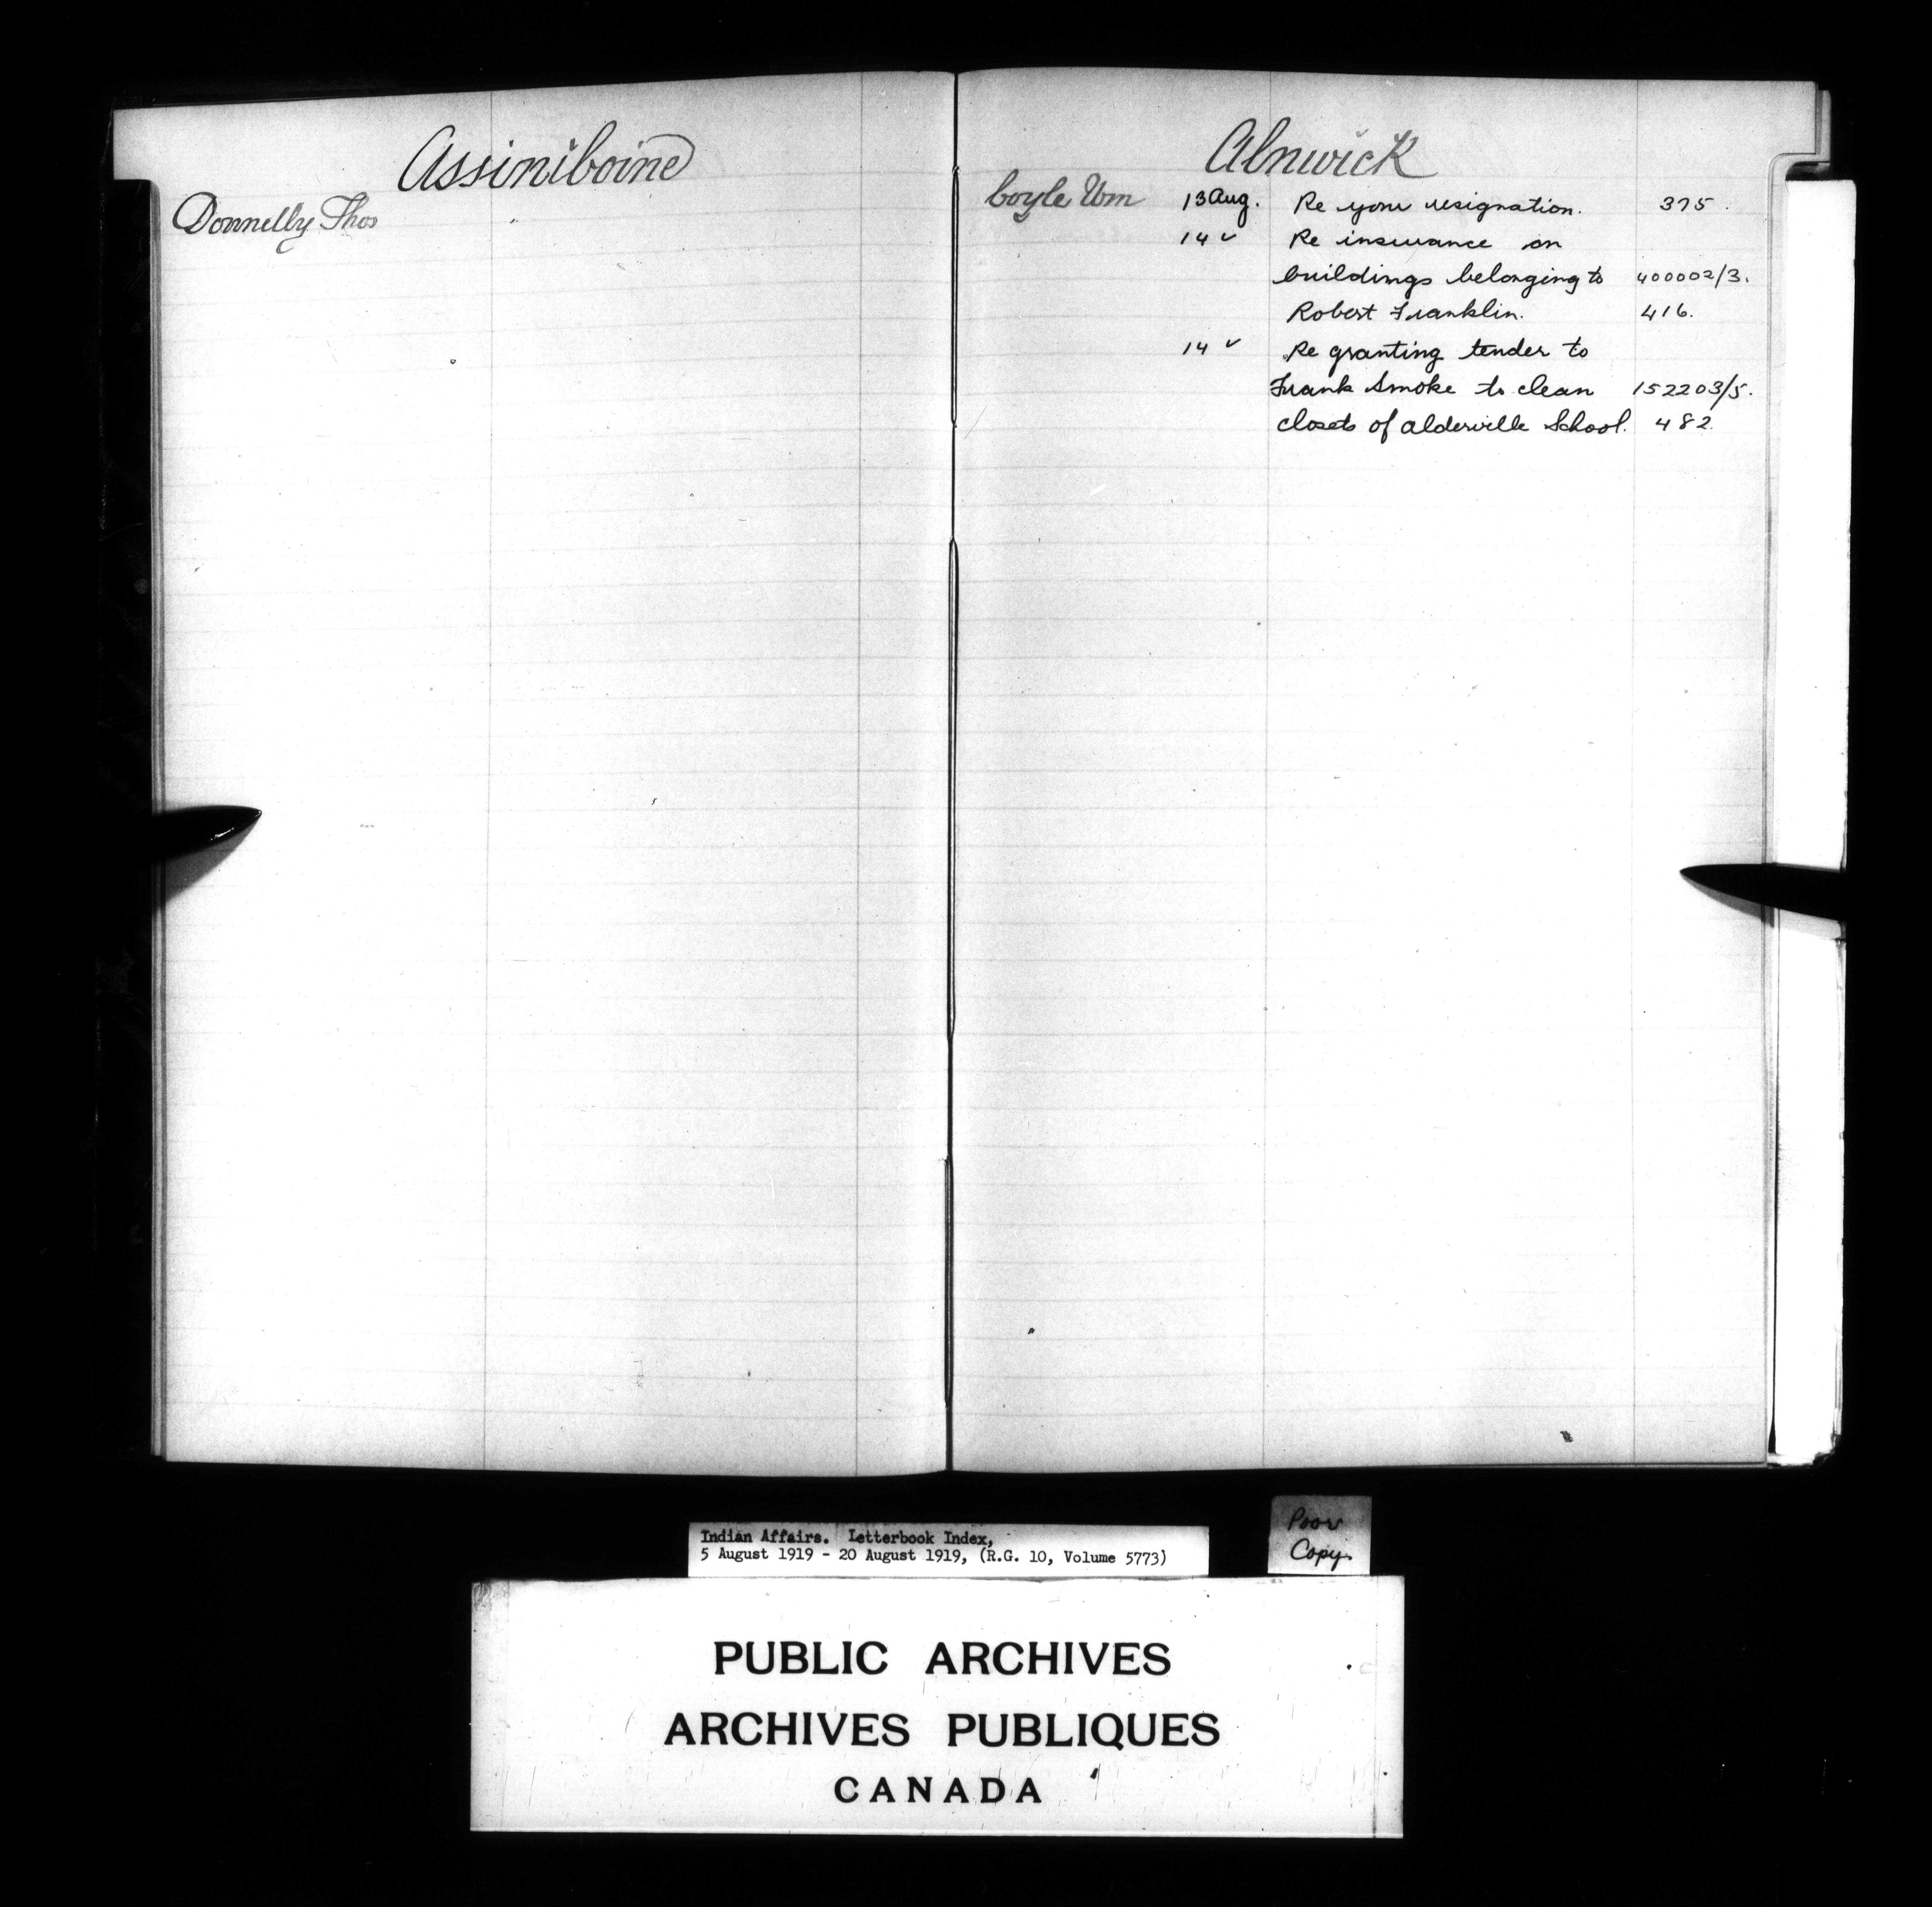 Assiniboine
Donnelly Thos
Alnwick
Coyle Wm 13 Aug. Re your resignation. 375.
14 ✓ Re insurance on
buildings belonging to 400002/3.
Robert Franklin. 416.
14 ✓ Re granting tender to
Frank Smoke to clean 152203/5.
closets of Alderville School. 482.
Indian Affairs. Letterbook Index,
5 August 1919 - 20 August 1919, (R.G. 10, Volume 5773)
Poor
Copy.
PUBLIC ARCHIVES
ARCHIVES PUBLIQUES
CANADA